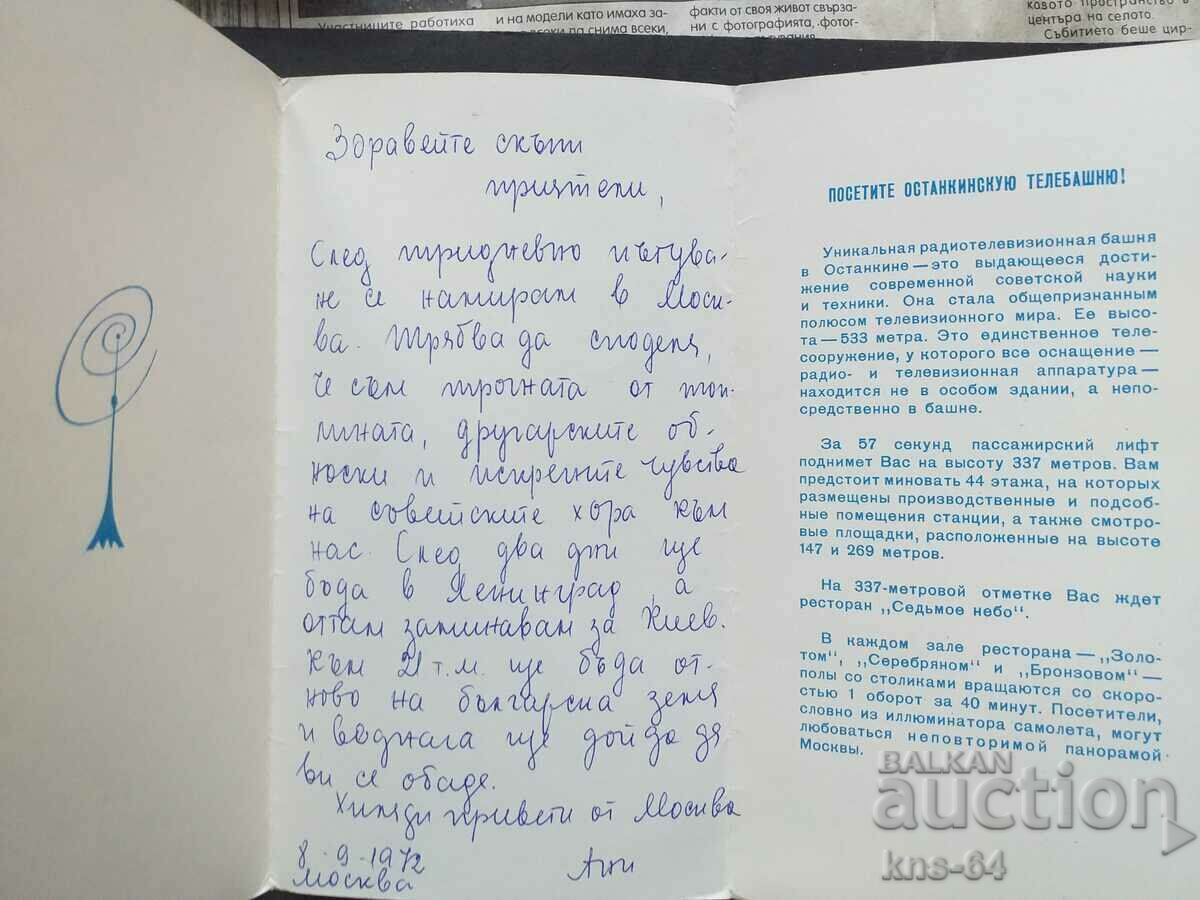 Участниците работиха
и на модели като имаха за-
да снима всеки,
факти от своя живот свърза-
ни с фотографията, фотог-
ково пространство в
центъра на селото.
Събитието беше цир-
Здравейте скъпи
приятели,
След тридневно пътува-
не се намирам в Моск-
ва. Трябва да споделя,
че съм трогната от топ-
лината, другарските об-
носки и искрените чувства
на съветските хора към
нас. След два дни ще
бъда в Ленинград, а
оттам заминавам за Киев.
Към 21 т.м. ще бъда от-
ново на българска земя
и веднага ще дойда да
ви се обадя.
Хиляди привети от Москва
8.9.1972
Москва
Ани
ПОСЕТИТЕ ОСТАНКИНСКУЮ ТЕЛЕБАШНЮ!
Уникальная радиотелевизионная башня
в Останкине — это выдающееся дости-
жение современной советской науки
и техники. Она стала общепризнанным
полюсом телевизионного мира. Ее высо-
та — 533 метра. Это единственное теле-
сооружение, у которого все оснащение —
радио- и телевизионная аппаратура —
находится не в особом здании, а непо-
средственно в башне.
За 57 секунд пассажирский лифт
поднимет Вас на высоту 337 метров. Вам
предстоит миновать 44 этажа, на которых
размещены производственные и подсоб-
ные помещения станции, а также смотро-
вые площадки, расположенные на высоте
147 и 269 метров.
На 337-метровой отметке Вас ждет
ресторан „Седьмое небо".
В каждом зале ресторана — „Золо-
том", „Серебряном" и „Бронзовом" —
полы со столиками вращаются со скоро-
стью 1 оборот за 40 минут. Посетители,
словно из иллюминатора самолета, могут
любоваться неповторимой панорамой
Москвы.
BALKAN
auction
kns-64